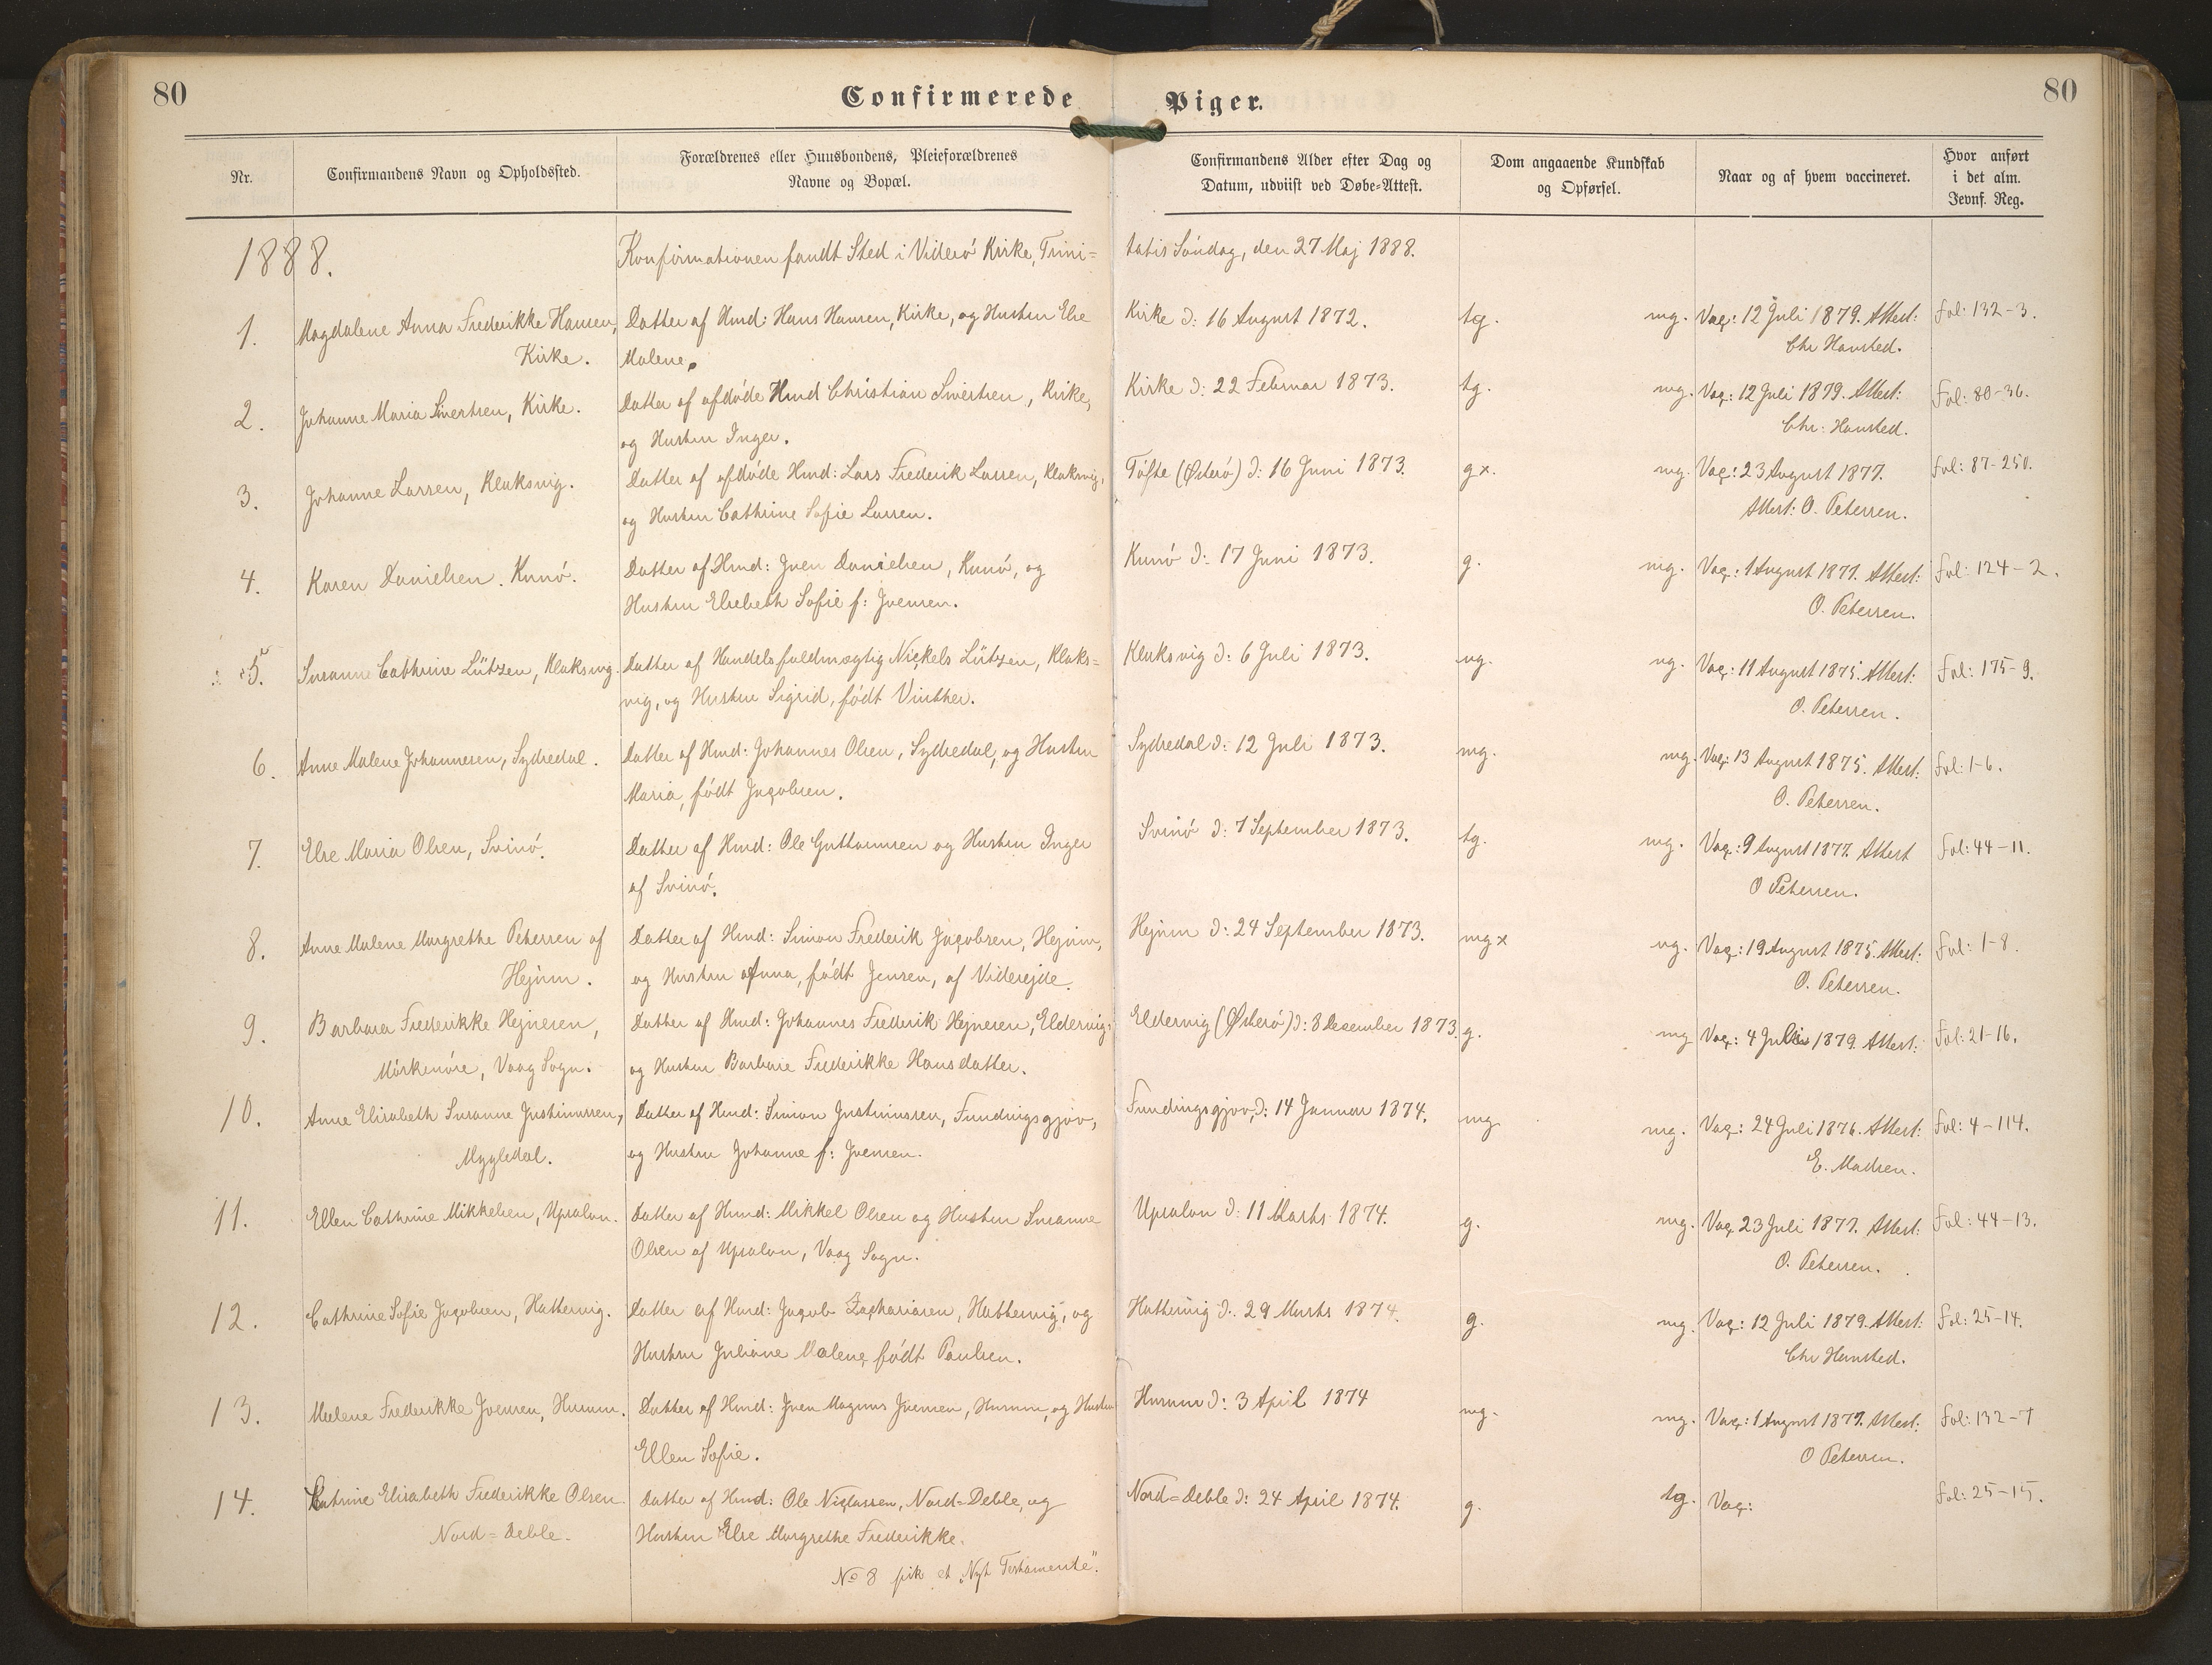 80
Confirmerede Piger.
80
Nr.
Confirmandens Navn og Opholdssted.
Forældrenes eller Huusbondens, Pleieforældrenes
Navne og Bopæl.
Confirmandens Alder efter Dag og
Datum, udviist ved Døbe=Attest.
Dom angaaende Kundskab
og Opførsel.
Naar og af hvem vaccineret.
Hvor anført
i det alm.
Jevnf. Reg.
1888.
Konfirmationen fandt Sted i Viderö Kirke, Trini=
tatis Söndag, den 27 Maj 1888.
1.
Magdalene Anna Frederikke Hansen,
Kirke.
Datter af Hmd: Hans Hansen, Kirke, og Hustru Else
Malene.
Kirke d: 16 August 1872.
tg.
mg.
Vac: 12 Juli 1879. Attest:
Chr Hansted.
Fol: 132-3.
2.
Johanne Maria Sivertsen, Kirke.
Datter af afdöde Hmd Christian Sivertsen, Kirke,
og Hustru Inger.
Kirke d: 22 Februar 1873.
tg.
mg.
Vac: 12 Juli 1879. Attest:
Chr: Hansted.
Fol: 80-36.
3.
Johanne Larsen, Klaksvig.
Datter af afdöde Hmd: Lars Frederik Larsen, Klaksvig,
og Hustru Cathrine Sofie Larsen.
Töfte (Østerö) d: 16 Juni 1873.
gx.
mg.
Vac: 23 August 1877.
Attest: O. Petersen.
Fol: 87-250.
4.
Karen Danielsen. Kunö.
Datter af Hmd: Joen Danielsen, Kunö, og
Hustru Elsebeth Sofie f: Joensen.
Kunö d: 17 Juni 1873.
g.
mg.
Vac: 1 August 1877. Attest:
O. Petersen.
Fol: 124-2.
5.
Susanne Cathrine Lützen, Klaksvig.
Datter af Handelsfuldmægtig Nickels Lützen, Klaks=
vig, og Hustru Sigrid, födt Vinther.
Klaksvig d: 6 Juli 1873.
ug.
ug.
Vac: 11 August 1875. Attest:
O. Petersen.
Fol: 175-9.
6.
Anne Malene Johannesen, Sydredal.
Datter af Hmd: Johannes Olsen, Sydredal, og Hustru
Maria, födt Jacobsen.
Sydredal d: 12 Juli 1873.
mg.
mg.
Vac: 13 August 1875. Attest:
O. Petersen.
Fol: 1-6.
7.
Else Maria Olsen, Svinö.
Datter af Hmd: Ole Guttormsen og Hustru Inger
af Svinö.
Svinö d: 7 September 1873.
tg.
mg.
Vac: 9 August 1877. Attest
O Petersen.
Fol: 44-11.
8.
Anne Malene Margrethe Petersen af
Hejnum.
Datter af Hmd: Simon Frederik Jacobsen, Hejnum,
og Hustru Anna, födt Jensen, af Viderejde.
Hejnum d: 24 September 1873.
mgx
ug.
Vac: 19 August 1875. Attest:
O. Petersen.
Fol: 1-8.
9.
Barbara Frederikke Hejnesen,
Mörkenöre, Vaag Sogn.
Datter af Hmd: Johannes Frederik Hejnesen, Eldervig,
og Hustru Barbara Frederikke Hansdatter.
Eldervig (Østerö) d: 8 Desember 1873.
g.
mg
Vac: 4 Juli 1879. Attest:
Fol: 21-16.
10.
Anne Elisabeth Susanne Justinussen,
Mygledal.
Datter af Hmd: Simon Justinussen, Fundingsgjov,
og Hustru Johanne f: Joensen.
Fundingsgjov, d: 14 Januar 1874.
mg
mg.
Vac: 24 Juli 1876. Attest:
E. Madsen.
Fol: 4-114.
11.
Ellen Cathrine Mikkelsen, Upsalon.
Datter af Hmd: Mikkel Olsen og Hustru Susanne
Olsen af Upsalon, Vaag Sogn.
Upsalon d: 11 Marts 1874.
g.
mg.
Vac 23 Juli 1877. Attest:
O. Petersen.
Fol: 44-13.
12.
Cathrine Sofie Jacobsen, Hattervig.
Datter af Hmd: Jacob Zachariasen, Hattervig, og
Hustru Juliane Malene, födt Paulsen.
Hattervig d. 29 Marts 1874.
g.
mg.
Vac: 12 Juli 1879. Attest:
Chr Hansted.
Fol: 25-14.
13.
Malene Frederikke Joensen, Husum.
Datter af Hmd: Joen Magnus Joensen, Husum, og Hustru
Ellen Sofie.
Husum d: 3 April 1874
mg.
mg.
Vac: 1 August 1877. Attest:
O Petersen.
Fol: 132-7
14.
Catrine Elisabeth Frederikke Olsen
Nord=Deble.
Datter af Hmd: Ole Niclassen, Nord=Deble, og
Hustru Else Margrethe Frederikke.
Nord=Deble d: 24 April 1874.
g.
tg.
Vac:
Fol: 25-15.
No 8 fik et „Nyt Testamente".